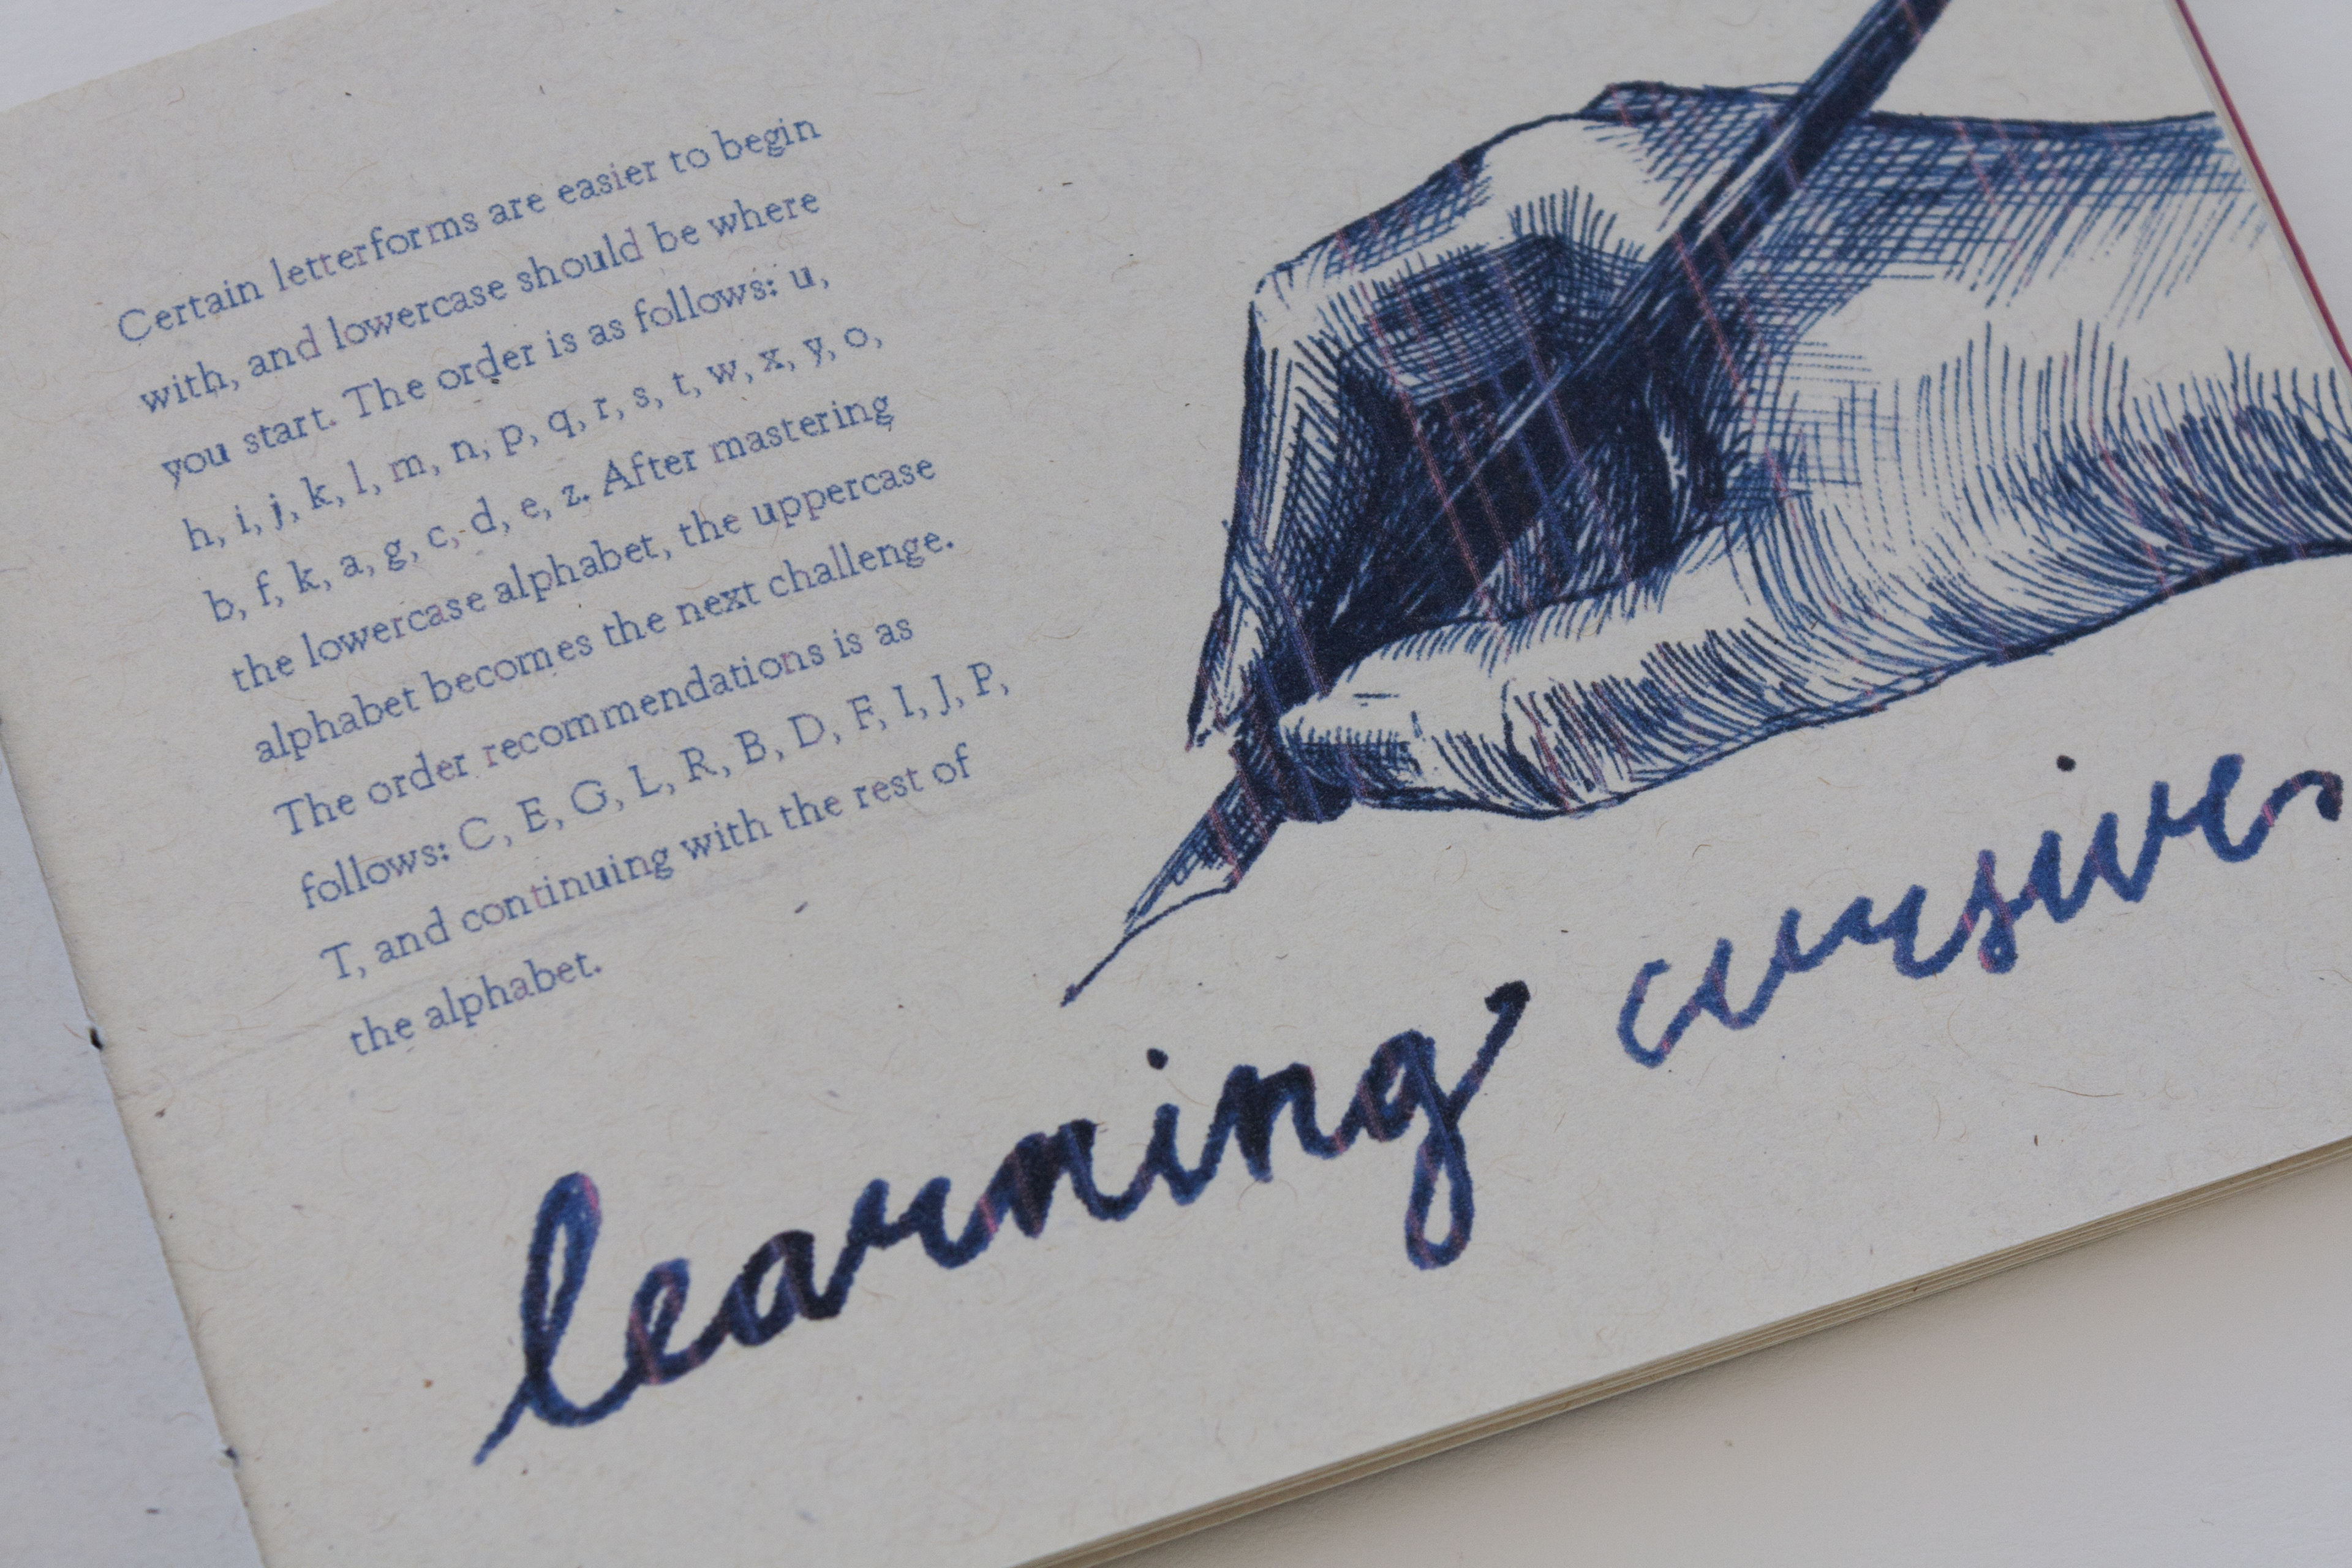 Certain letterforms are easier to begin
with, and lowercase should be where
you start. The order is as follows: u,
h, i, j, k, l, m, n, p, q, r, s, t, w, x, y, o,
b, f, k, a, g, c, d, e, z. After mastering
the lowercase alphabet, the uppercase
alphabet becomes the next challenge.
The order recommendations is as
follows: C, E, G, L, R, B, D, F, I, J, P,
T, and continuing with the rest of
the alphabet.
learning cursive